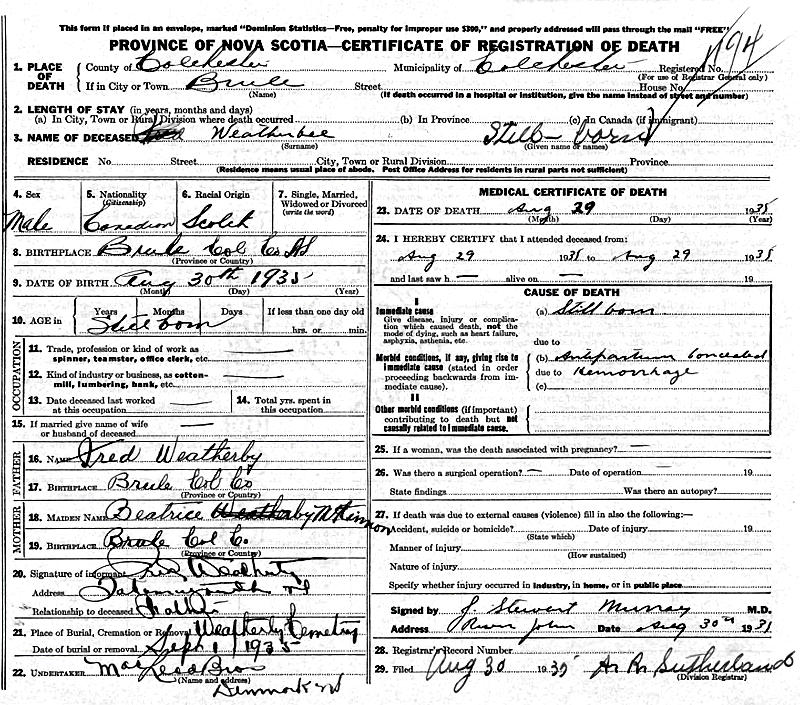 This form if placed in an envelope, marked "Dominion Statistics—Free, penalty for improper use $300," and properly addressed will pass through the mail "FREE"
PROVINCE OF NOVA SCOTIA—CERTIFICATE OF REGISTRATION OF DEATH
1. PLACE OF DEATH
County of Colchester Municipality of Colchester Registered No. 1194
(For use of Registrar General only)
If in City or Town Brule Street House No.
(Name) (If death occurred in a hospital or institution, give the name instead of street and number)
2. LENGTH OF STAY (in years, months and days)
(a) In City, Town or Rural Division where death occurred (b) In Province (c) In Canada (if immigrant)
3. NAME OF DECEASED Weatherbee Still-born
(Surname) (Given name or names)
RESIDENCE No. Street City, Town or Rural Division Province
(Residence means usual place of abode. Post Office Address for residents in rural parts not sufficient)
4. Sex
Male
5. Nationality (Citizenship)
Canadian
6. Racial Origin
Scotch
7. Single, Married, Widowed or Divorced (write the word)
8. BIRTHPLACE Brule Col Co NS
(Province or Country)
9. DATE OF BIRTH Aug 30th 1935
(Month) (Day) (Year)
10. AGE in Years Months Days If less than one day old
Still born hrs. or min.
OCCUPATION
11. Trade, profession or kind of work as spinner, teamster, office clerk, etc.
12. Kind of industry or business, as cotton-mill, lumbering, bank, etc.
13. Date deceased last worked at this occupation
14. Total yrs. spent in this occupation
15. If married give name of wife or husband of deceased
FATHER
16. NAME Fred Weatherby
17. BIRTHPLACE Brule Col Co
(Province or Country)
MOTHER
18. MAIDEN NAME Beatrice Weatherby McKinnon
19. BIRTHPLACE Brule Col C.
(Province or Country)
20. Signature of informant Fred Weatherby
Address Tatamagouche NS
Relationship to deceased Father
21. Place of Burial, Cremation or Removal Weatherby Cemetery
Date of burial or removal Sept 1 / 1935
22. UNDERTAKER Mac Leod Bros
(Name and address)
Denmark NS
MEDICAL CERTIFICATE OF DEATH
23. DATE OF DEATH Aug 29 1935
(Month) (Day) (Year)
24. I HEREBY CERTIFY that I attended deceased from:
Aug 29 1935 to Aug 29 1935
and last saw h — alive on — 19
CAUSE OF DEATH
I
Immediate cause
Give disease, injury or complication which caused death, not the mode of dying, such as heart failure, asphyxia, asthenia, etc.
(a) Still born
due to
Morbid conditions, if any, giving rise to immediate cause (stated in order proceeding backwards from immediate cause).
(b) Antipartum Concealed
due to Hemorrhage
(c)
II
Other morbid conditions (if important) contributing to death but not causally related to immediate cause.
25. If a woman, was the death associated with pregnancy? —
26. Was there a surgical operation? — Date of operation — 19
State findings Was there an autopsy?
27. If death was due to external causes (violence) fill in also the following:—
Accident, suicide or homicide? Date of injury 19
(State which)
Manner of injury
(How sustained)
Nature of injury
Specify whether injury occurred in industry, in home, or in public place
Signed by J. Stewart Murray M.D.
Address River John Date Aug 30th 1935
28. Registrar's Record Number
29. Filed Aug 30 1935 Sutherland
(Division Registrar)